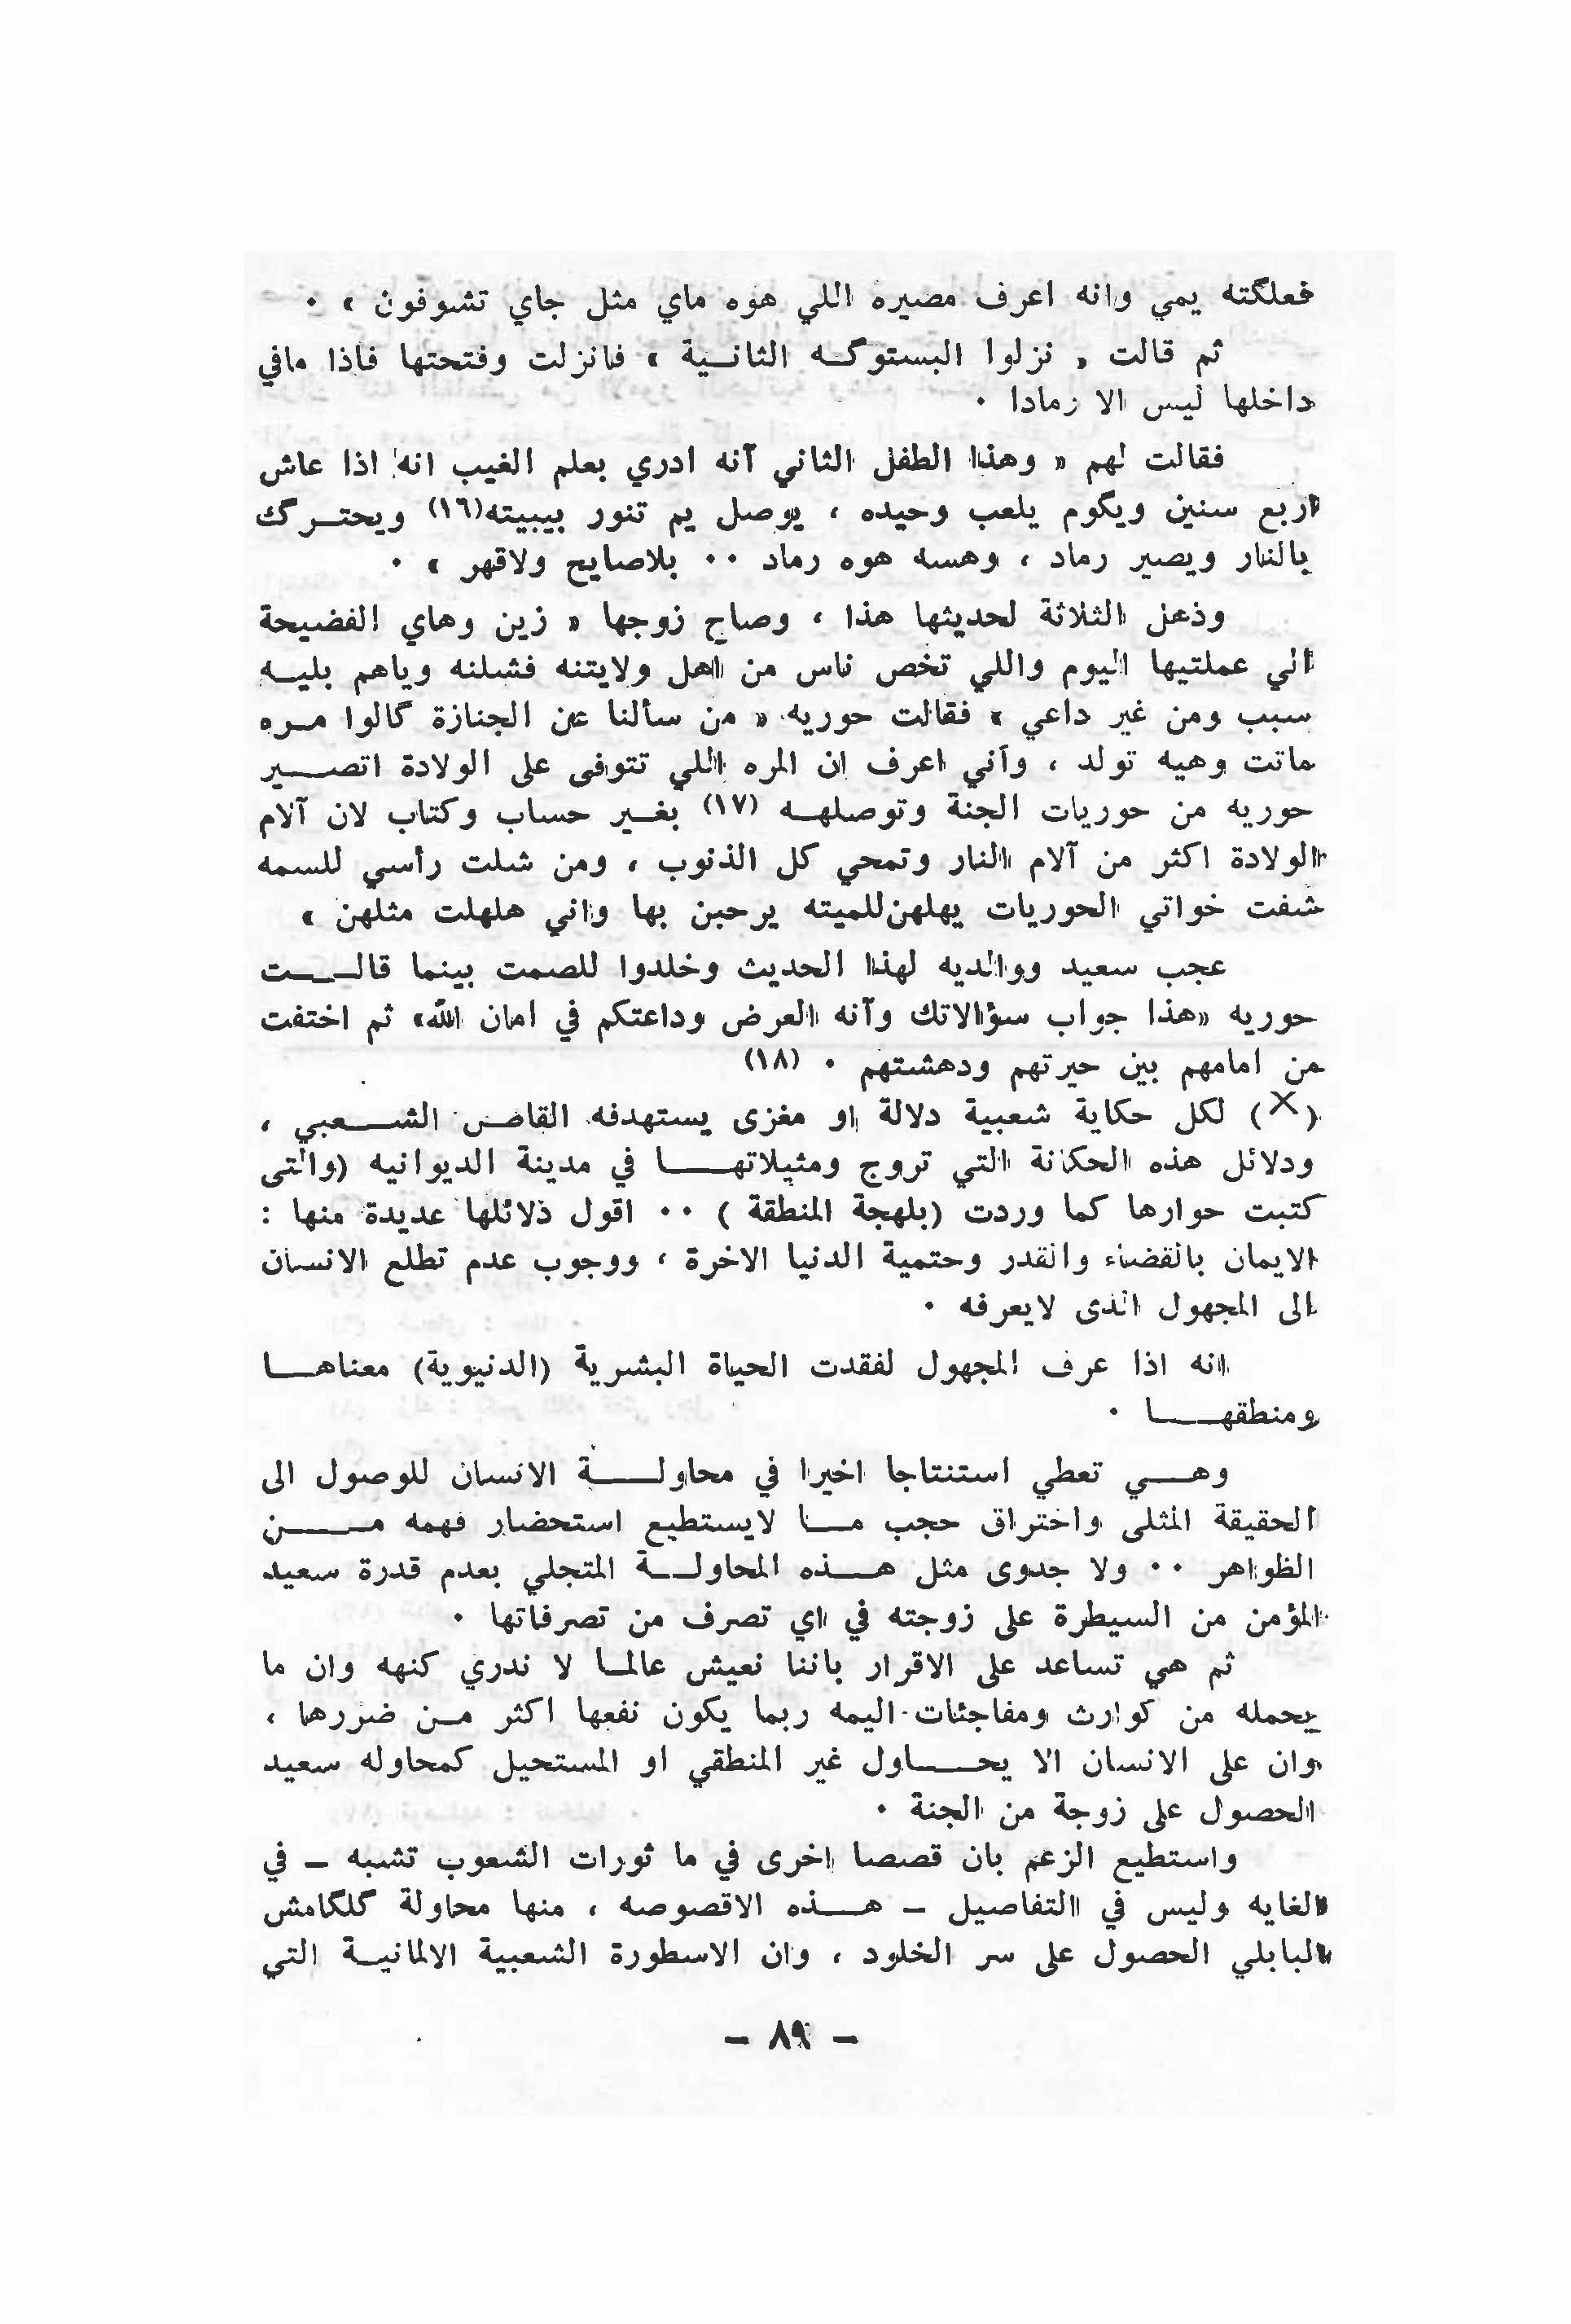 فعلگته يمي وانه اعرف مصيره اللي هوه ماي مثل جاي تشوفون » ·
ثم قالت « نزلوا البستوگــه الثانــية » فانزلت وفتحتها فاذا مافي
داخلها ليس الا رمادا ·
فقالت لهم « وهذا الطفل الثاني آنه ادري بعلم الغيب انه اذا عاش
اربع سنين ويگوم يلعب وحيده ، يوصل يم تنور بيبيته(١٦) ويحتــرگ
بالنار ويصير رماد ، وهسه هوه رماد ·· بلاصايح ولاقهر » ·
وذهل الثلاثة لحديثها هذا ، وصاح زوجها « زين وهاي الفضيحة
الي عملتيها اليوم واللي تخص ناس من اهل ولايتنه فشلنه وياهم بليــه
سبب ومن غير داعي » فقالت حوريه « من سألنا عن الجنازة گالوا مــره
ماتت وهيه تولد ، وآني اعرف ان المره اللي تتوفى على الولادة اتصـــير
حوريه من حوريات الجنة وتوصلهــه (١٧) بغــير حساب وكتاب لان آلام
الولادة اكثر من آلام النار وتمحي كل الذنوب ، ومن شلت رأسي للسمه
شفت خواتي الحوريات يهلهن للميته يرحبن بها واني هلهلت مثلهن »
عجب سعيد ووالديه لهذا الحديث وخلدوا للصمت بينما قالـــت
حوريه «هذا جواب سؤالاتك وآنه العرض وداعتكم في امان الله» ثم اختفت
من امامهم بين حيرتهم ودهشتهم · (١٨)
(X) لكل حكاية شعبية دلالة او مغزى يستهدفه القاص الشـــعبي ،
ودلائل هذه الحكانة التي تروج ومثيلاتهـــا في مدينة الديوانيه (والتى
كتبت حوارها كما وردت (بلهجة المنطقة ) ·· اقول ذلائلها عديدة منها :
الايمان بالقضاء والقدر وحتمية الدنيا الاخرة ، ووجوب عدم تطلع الانسان
الى المجهول الذى لايعرفه ·
انه اذا عرف المجهول لفقدت الحياة البشرية (الدنيوية) معناهـــا
ومنطقهـــا ·
وهـــي تعطي استنتاجا اخيرا في محاولـــة الانسان للوصول الى
الحقيقة المثلى واختراق حجب مـــا لايستطيع استحضار فهمه مـــن
الظواهر ·· ولا جدوى مثل هـــذه المحاولـــة المتجلي بعدم قدرة سعيد
المؤمن من السيطرة على زوجته في اي تصرف من تصرفاتها ·
ثم هي تساعد على الاقرار باننا نعيش عالمــا لا ندري كنهه وان ما
يحمله من كوارث ومفاجئات اليمه ربما يكون نفعها اكثر مــن ضررها ،
وان على الانسان الا يحـــاول غير المنطقي او المستحيل كمحاوله سعيد
الحصول على زوجة من الجنة ·
واستطيع الزعم بان قصصا اخرى في ما ثورات الشعوب تشبه – في
الغايه وليس في التفاصيل – هـــذه الاقصوصه ، منها محاولة گلگامش
البابلي الحصول على سر الخلود ، وان الاسطورة الشعبية الالمانيــة التي
– ٨٩ –